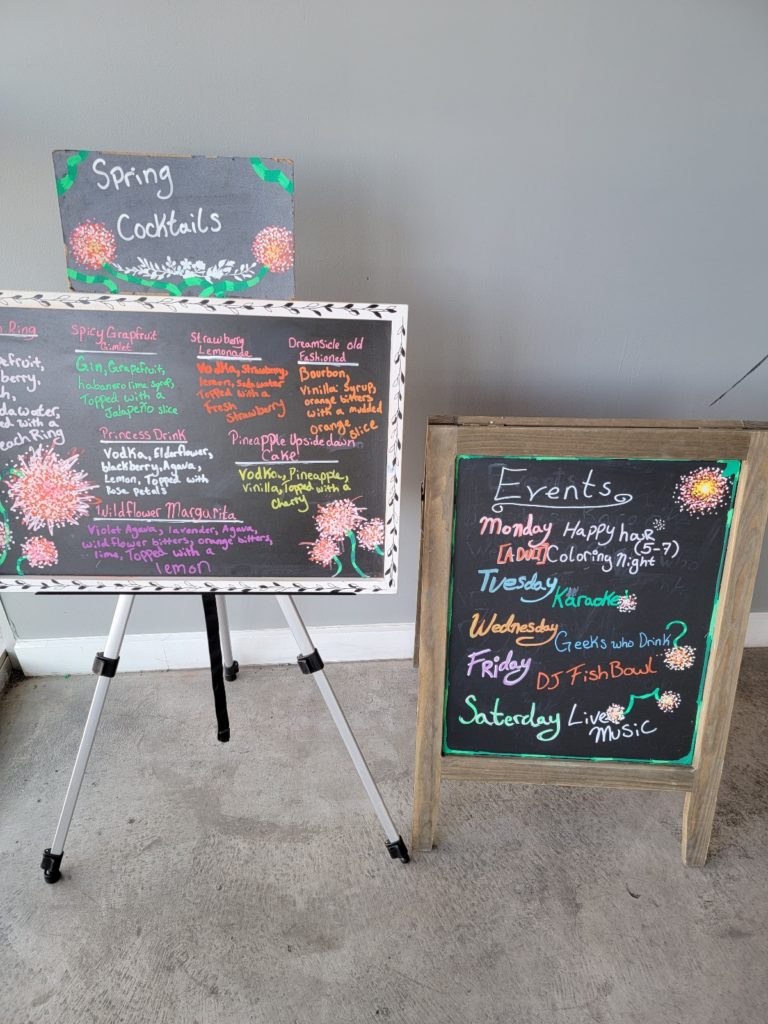 Spring
Cocktails
Ring
Spicy Grapfruit
Gimlet
Gin, Grapefruit,
habanero lime syrup,
Topped with a
Jalapeño slice
Strawberry
Lemonade
Vodka, Strawberry,
lemon, Soda water
Topped with a
Fresh Strawbury
Dreamsicle old
Fashioned
Bourbon,
Vinilla Syrup,
orange bitters
with a mudded
orange slice
Princess Drink
Vodka, Elderflower,
blackberry, Agava,
Lemon, Topped with
Rose petals
Pineapple Upsidedawn
Cake
Vodka, Pineapple,
Vinilla, Topped with a
cherry
Wildflower Margarita
Violet Agava, lavander, Agava,
wildflower bitters, orange bitters,
lime, Topped with a
lemon
Events
Monday Happy haR
(5-7)
[Adult] Coloring Night
Tuesday Karaoke!
Wednesday Geeks who Drink?
Friday DJ FishBowl
Saterday Live
Music